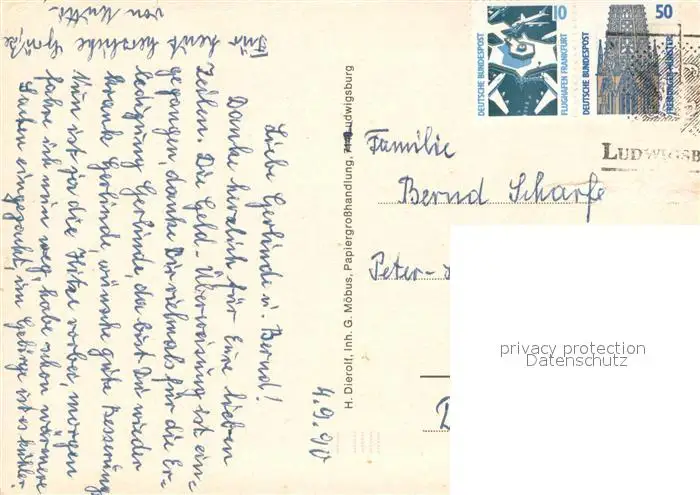 4.9.90
Liebe Gerlinde u. Bernd!
Danke herzlich für Eure lieben
Zeilen. Die Geld-Überweisung ist ein=
gegangen, danke Dir vielmals für die Er=
ledigung Gerlinde, da bist Du wieder
krank Gerlinde, wünsche gute Besserung
Nun ist ja die Hitze vorbei, morgen
fahre ich nun weg, habe schon wärmere
Sachen eingepackt, im Gebirge ist es kühler.
Für heut herzliche Grüße
von Mutti.
H. Dierolf, Inh. G. Möbus, Papiergroßhandlung, Ludwigsburg
10
DEUTSCHE BUNDESPOST
FLUGHAFEN FRANKFURT
50
DEUTSCHE BUNDESPOST
FREIBURGER MÜNSTER
LUDWIGSB
Familie
Bernd Scharfe
Peter-
privacy protection
Datenschutz